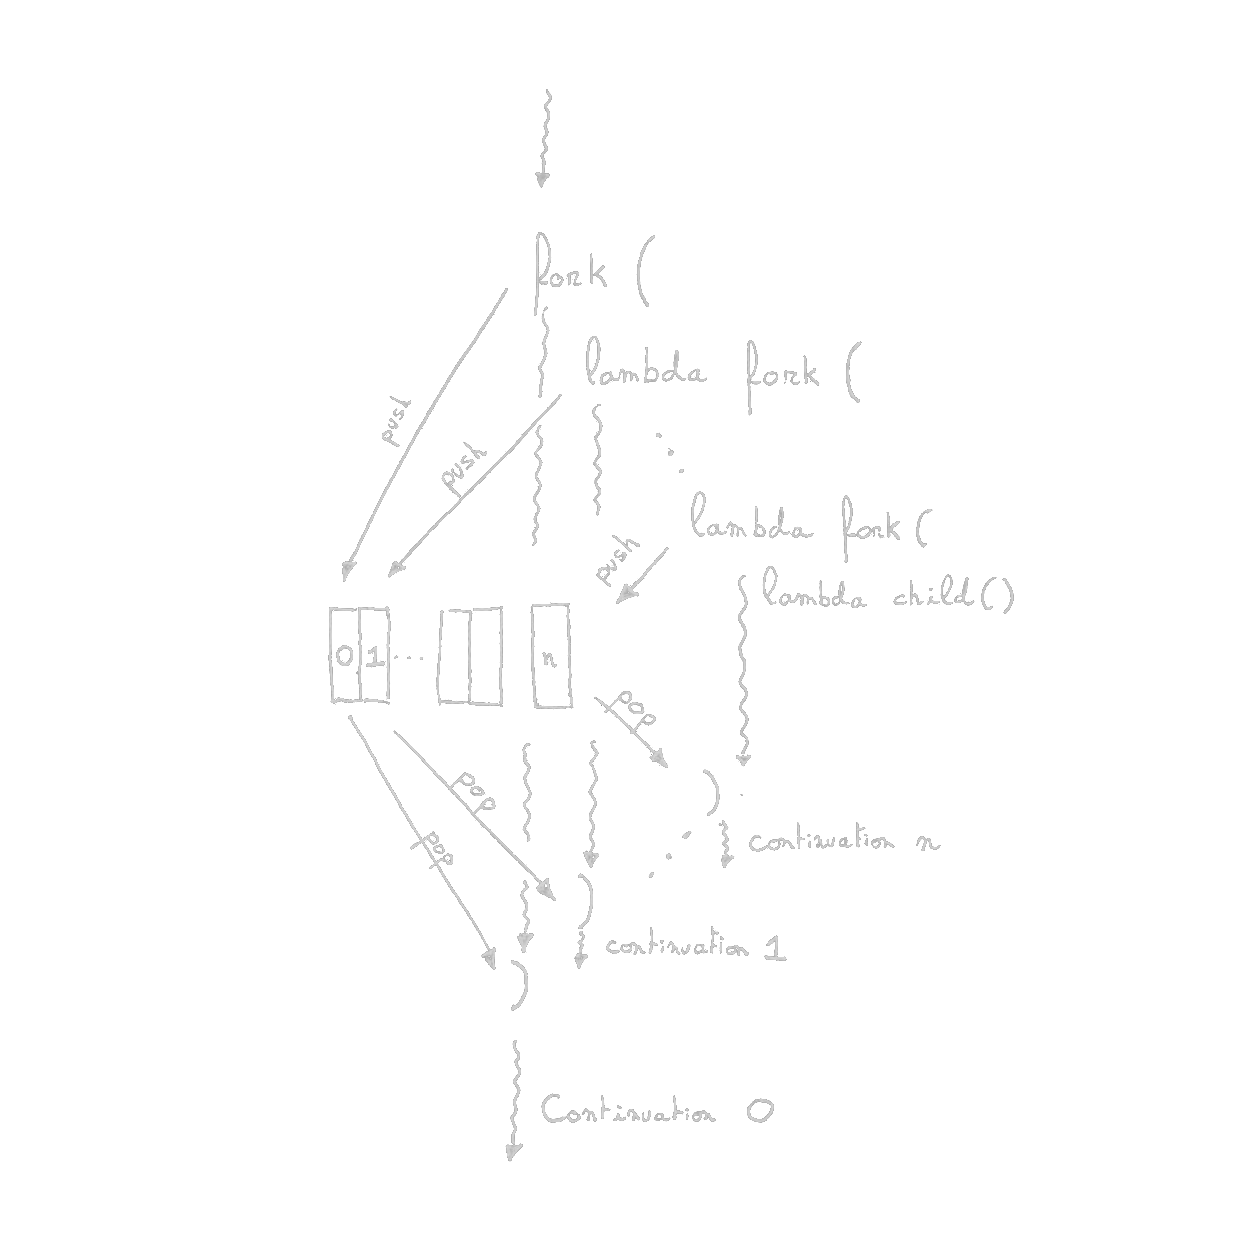 fork (
lambda fork (
push
push
...
lambda fork (
push
lambda child()
0 1 ... n
pop
pop
pop
)
continuation n
...
)
continuation 1
)
Continuation 0